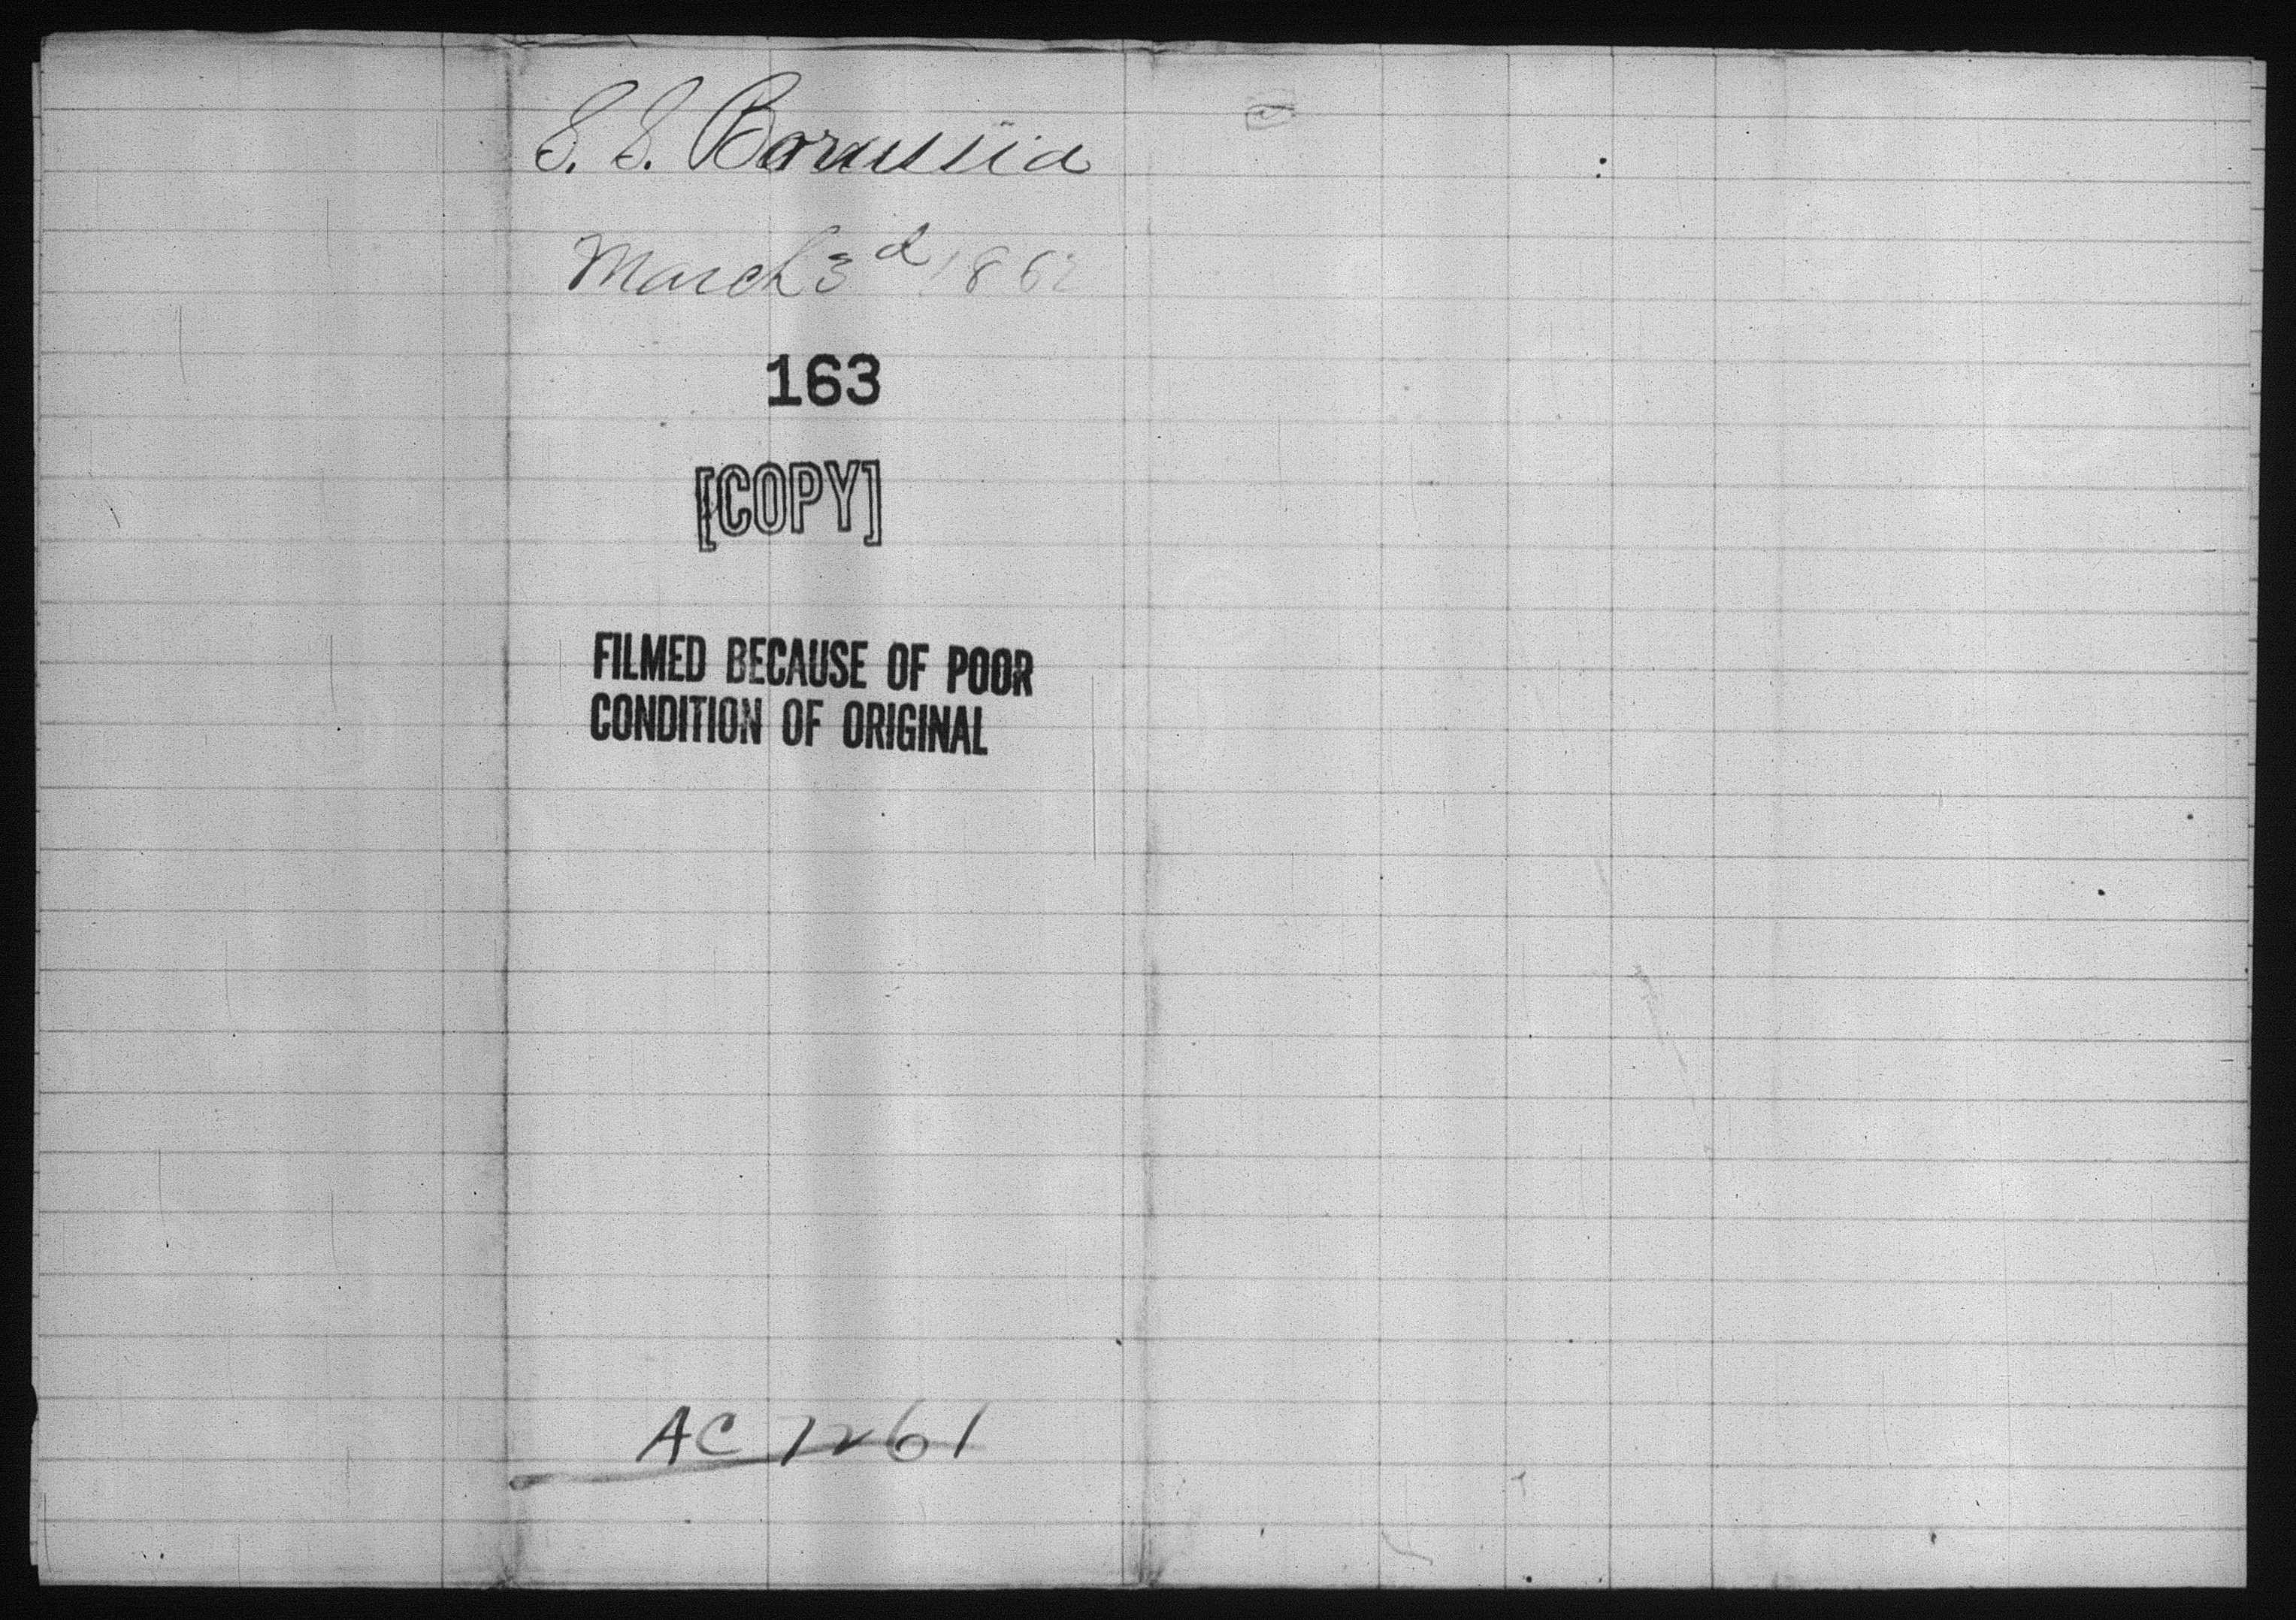 S. S. Borussia
March 3d 1862
163
[COPY]
FILMED BECAUSE OF POOR
CONDITION OF ORIGINAL
AC 7261